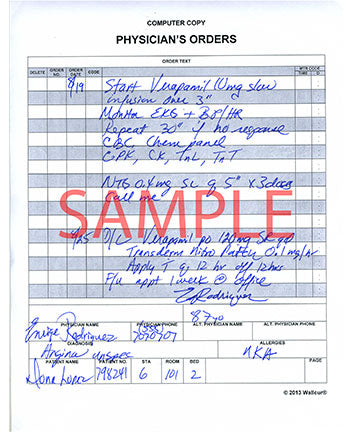 COMPUTER COPY
PHYSICIAN'S ORDERS
ORDER TEXT
DELETE ORDER NO. ORDER DATE CODE TIME D
8/19 Start Verapamil 10mg slow
infusion over 3"
Monitor EKG + BP/HR
Repeat 30" if no response
CBC, Chem panel
CPK, CK, TnL, TnT
NTG 0.4mg SL q 5" x 3 doses
Call me
SAMPLE
D/C Verapamil po 120mg SR qd
Transderm Nitro Patch 0.1mg/hr
Apply T q 12 hr off 12hrs
F/u appt 1 week @ office
E Rodriguez
Enriqe Rodriguez (555) 7070707 87yo
PHYSICIAN NAME PHYSICIAN PHONE ALT. PHYSICIAN NAME ALT. PHYSICIAN PHONE
Angina unspec NKA
DIAGNOSIS ALLERGIES
PATIENT NAME PATIENT NO. STA ROOM BED PAGE
798241 6 101 2
© 2013 Wallcur®